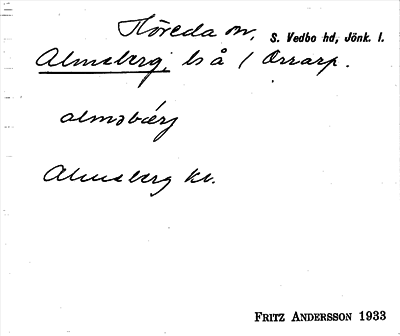 Höreda sn, S. Vedbo hd, Jönk. l.
Almeberg, ls å / Orrarp.
alməbærj
Almeberg kt.
FRITZ ANDERSSON 1933